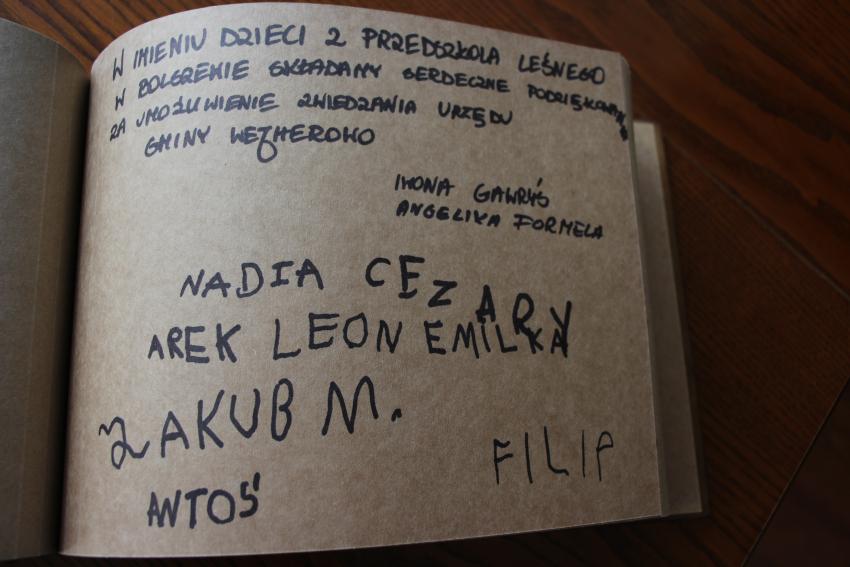 W IMIENIU DZIECI Z PRZEDSZKOLA LEŚNEGO
W BOLSZEWIE SKŁADAMY SERDECZNE PODZIĘKOWANIA
ZA UMOŻLIWIENIE ZWIEDZANIA URZĘDU
GMINY WEJHEROWO
IWONA GAWRYŚ
ANGELIKA FORMELA
NADIA CEZARY
AREK LEON EMILKA
JAKUB M.
FILIP
ANTOŚ